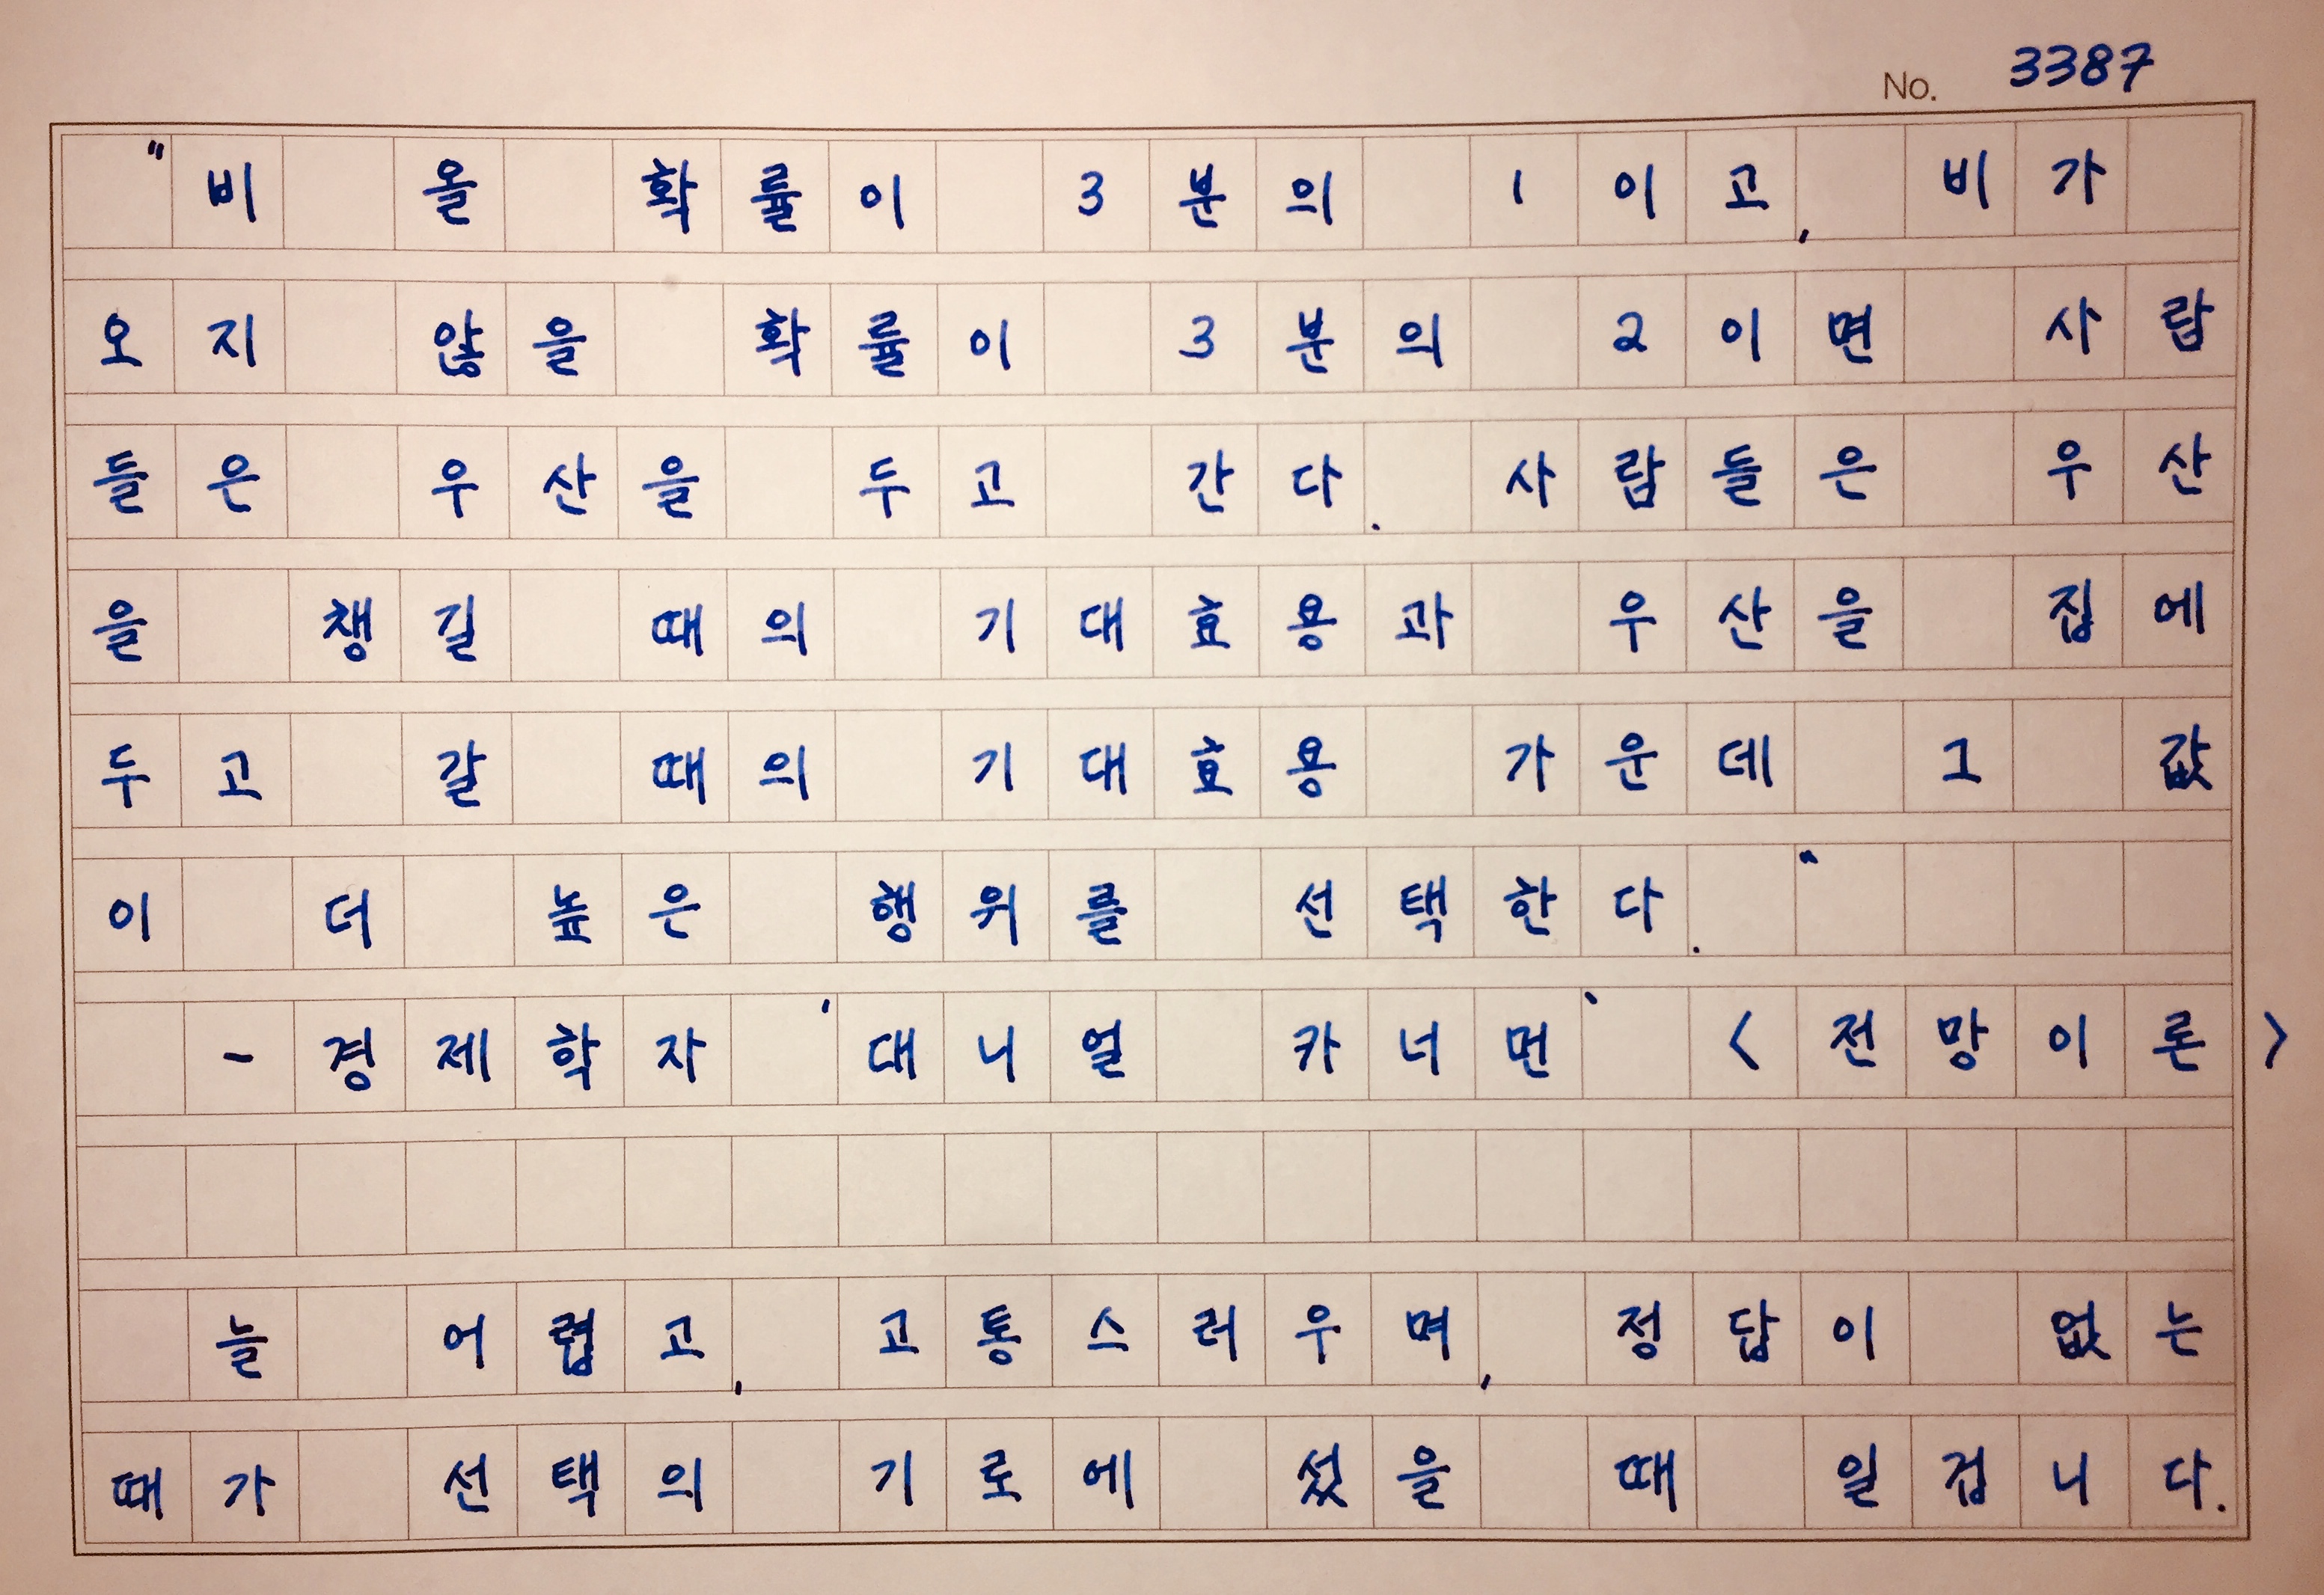 No. 3387
"비 올 확률이 3분의 1이고, 비가
오지 않을 확률이 3분의 2이면 사람
들은 우산을 두고 간다. 사람들은 우산
을 챙길 때의 기대효용과 우산을 집에
두고 갈 때의 기대효용 가운데 그 값
이 더 높은 행위를 선택한다."
- 경제학자 '대니얼 카너먼' <전망이론>
늘 어렵고, 고통스러우며, 정답이 없는
때가 선택의 기로에 섰을 때 일겁니다.